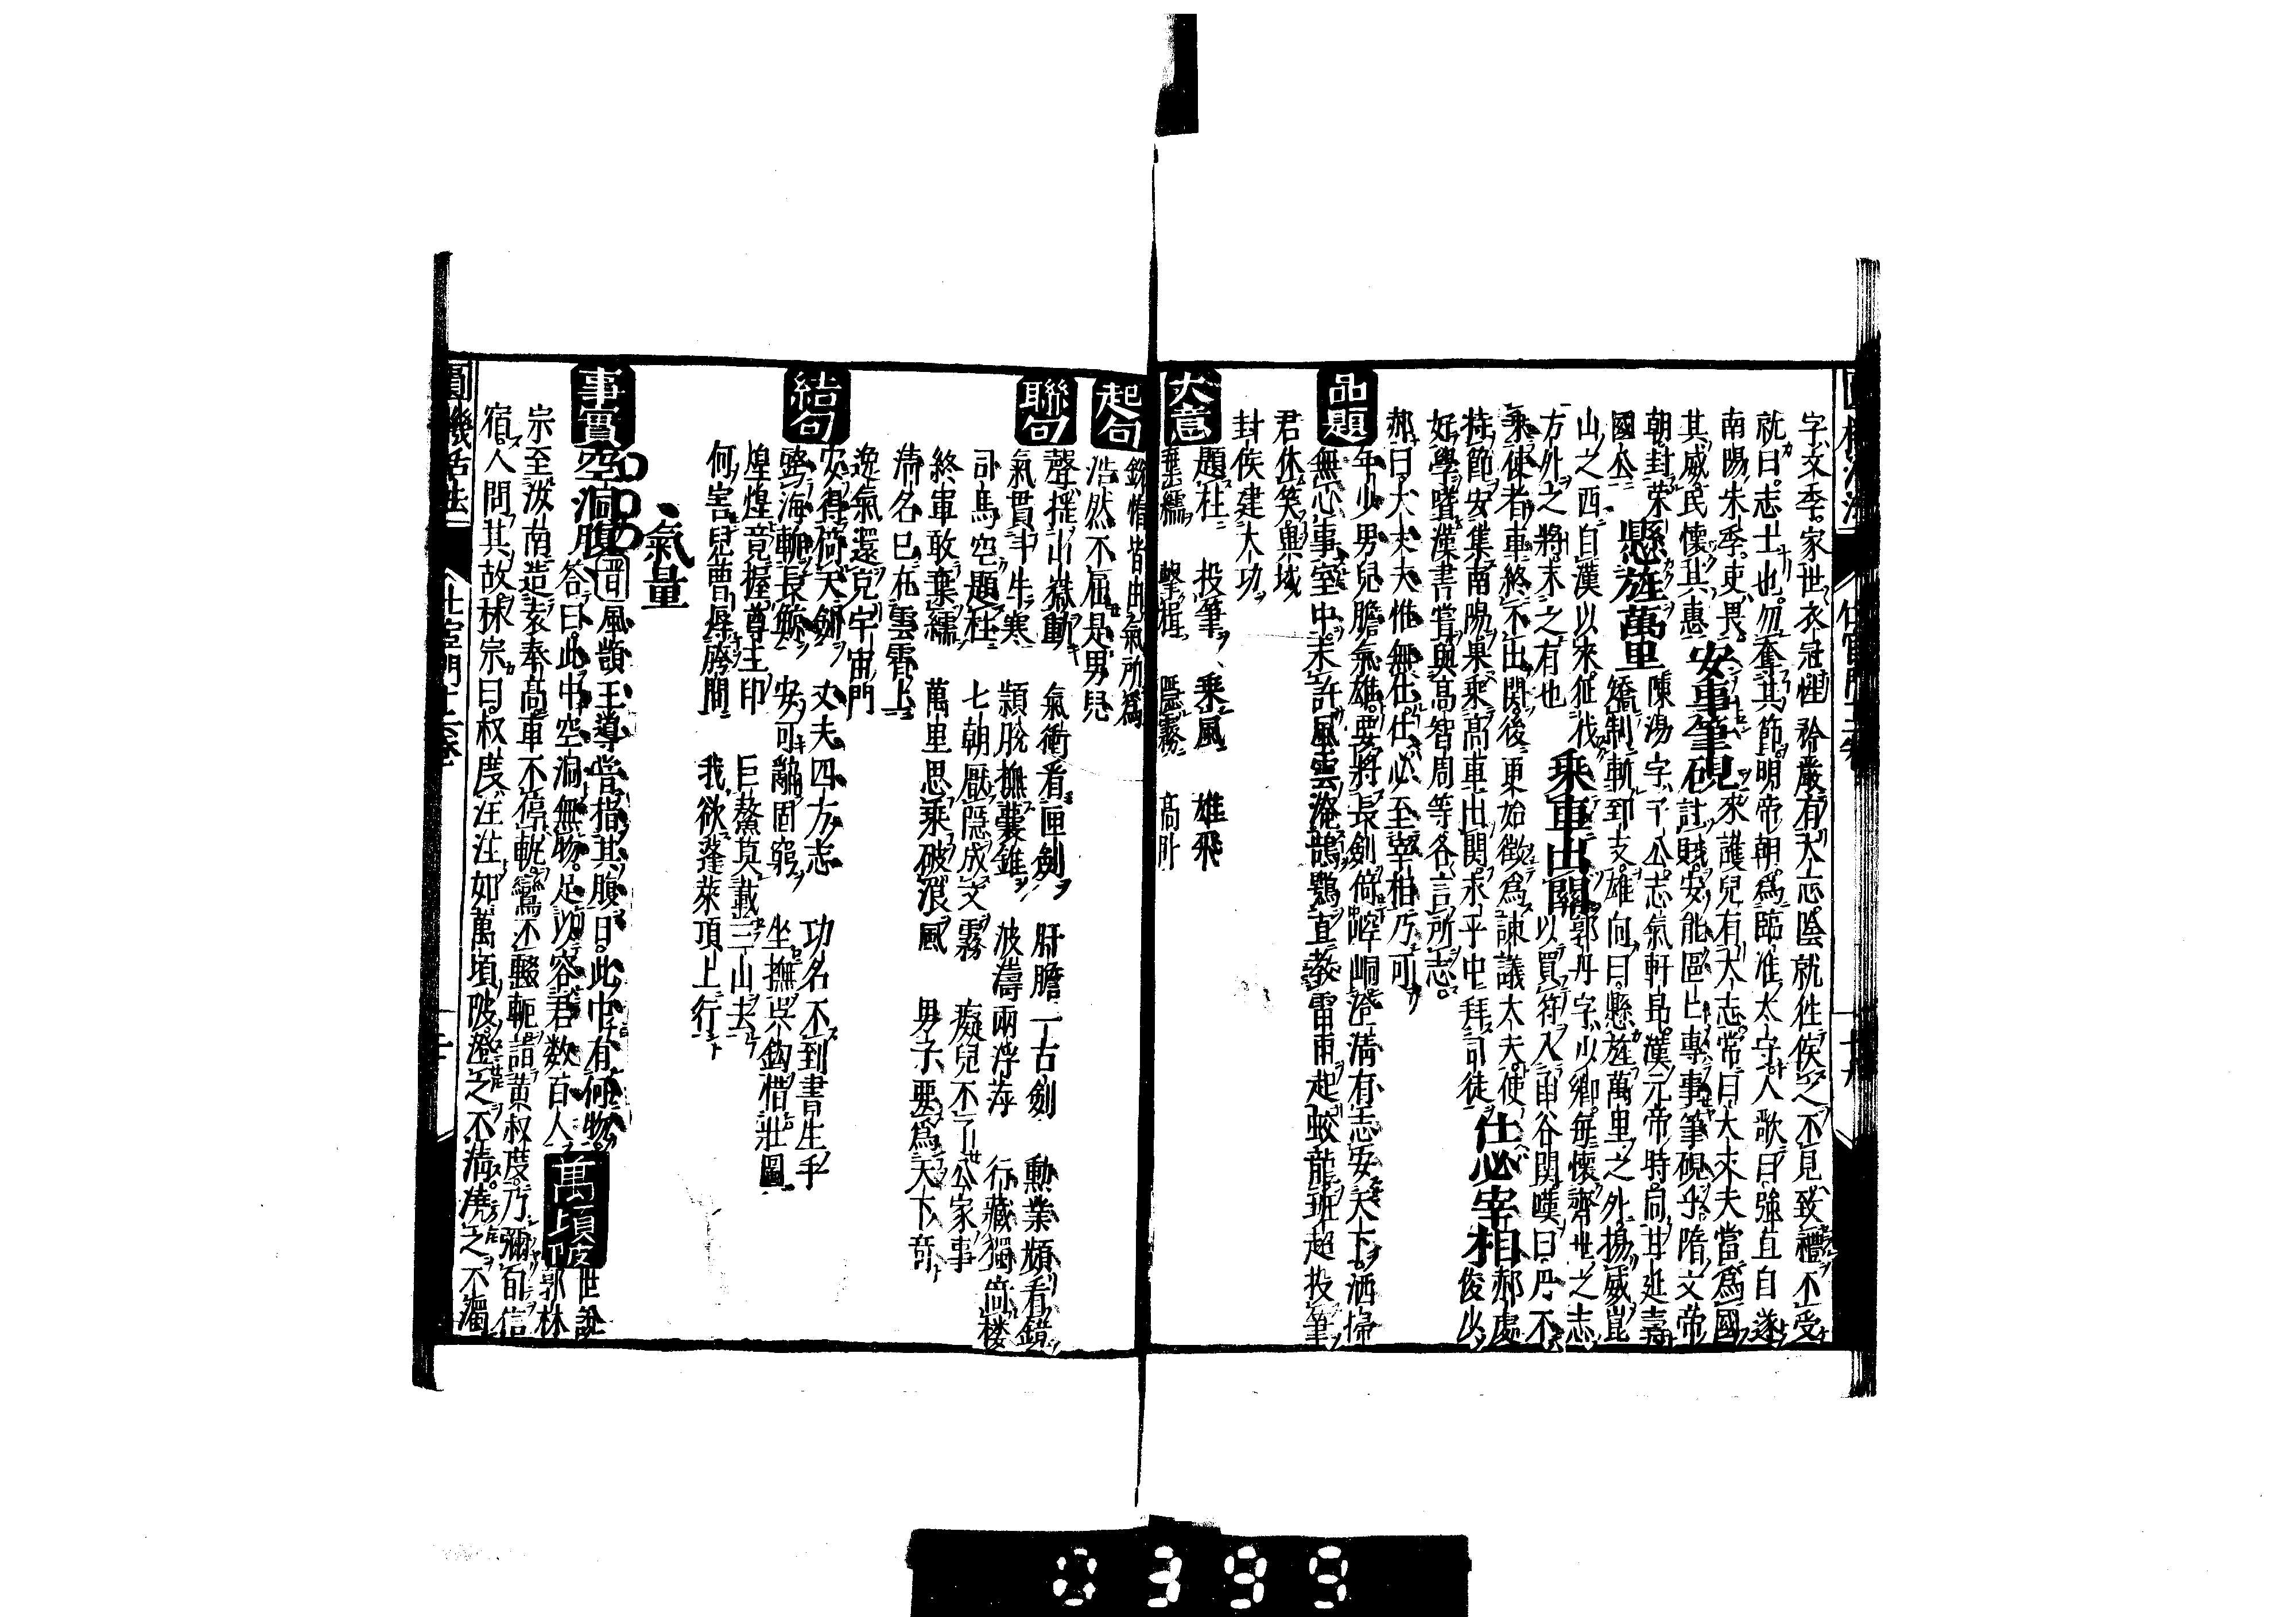 字文季家世衣冠性矜嚴有大志陰就往候之不見致禮不受
就曰志士也勿奪其節明帝朝為臨淮太守人歌曰強直自遂
南陽朱季吏畏
其威民懷其惠 安事筆硯 來護兒有大志常曰大丈夫當為國
討賊安能區區專事筆硯乎隋文帝
朝封榮
國公 懸旌萬里 陳湯字子公志氣軒昂漢元帝時同甘延壽
矯制斬郅支雄向曰懸旌萬里之外揚威崑
山之西自漢以來征伐
方外之將未之有也 乘車出關 郭丹字少卿每懷濟世之志
以買符入函谷關嘆曰丹不
乘使者車終不出關後更始徵為諫議大夫使
持節安集南陽果乘高車出關 求乎中拜司徒 仕必宰相 郝處俊少
好學嗜漢書嘗與高智周等各言所志
郝曰大丈夫惟無仕仕必至宰相乃可
品題 年少男兒膽氣雄要將長劍倚崆峒澄清有志安天下洒掃
無心事室中未許風雲淹鵠鶚直教雷雨起蛟龍班超投筆
君休笑異域
封侯建大功
大意 題柱 投筆 乘風 雄飛
棄繻 擊楫 隱霧 高
起句 錦情皆由氣所為
浩然不屈是男兒
聯句 聲摇山嶽動 氣衝看匣劍 肝膽一古劍 勳業頻看鏡
氣貫斗牛寒 頴脫撫囊錐 波濤兩浮萍 行藏獨倚樓
司馬空題柱 七朝厭隱成文霧 癡兒不了公家事
終軍敢棄繻 萬里思乘破浪風 男子要為天下奇
清名已在雲霄上
逸氣還克宇宙門
結句 安得倚天劍 丈夫四方志 功名不到書生手
跨海斬長鯨 安可辭固窮 坐撫吳鈎惜壯圖
煌煌竟握尊主印 巨鰲莫載三山去
何害兒曹辱胯間 我欲蓬萊頂上行
氣量
事實 空洞腹 晉周顗王導嘗指其腹曰此中有何物
答曰此中空洞無物足以容君數百人 萬頃陂 世說
郭林
宗至汝南造袁奉高車不停軌鸞不輟軛詣黃叔度乃彌日信
宿人問其故林宗曰叔度汪汪如萬頃陂澄之不清撓之不濁
圓機活法
0399